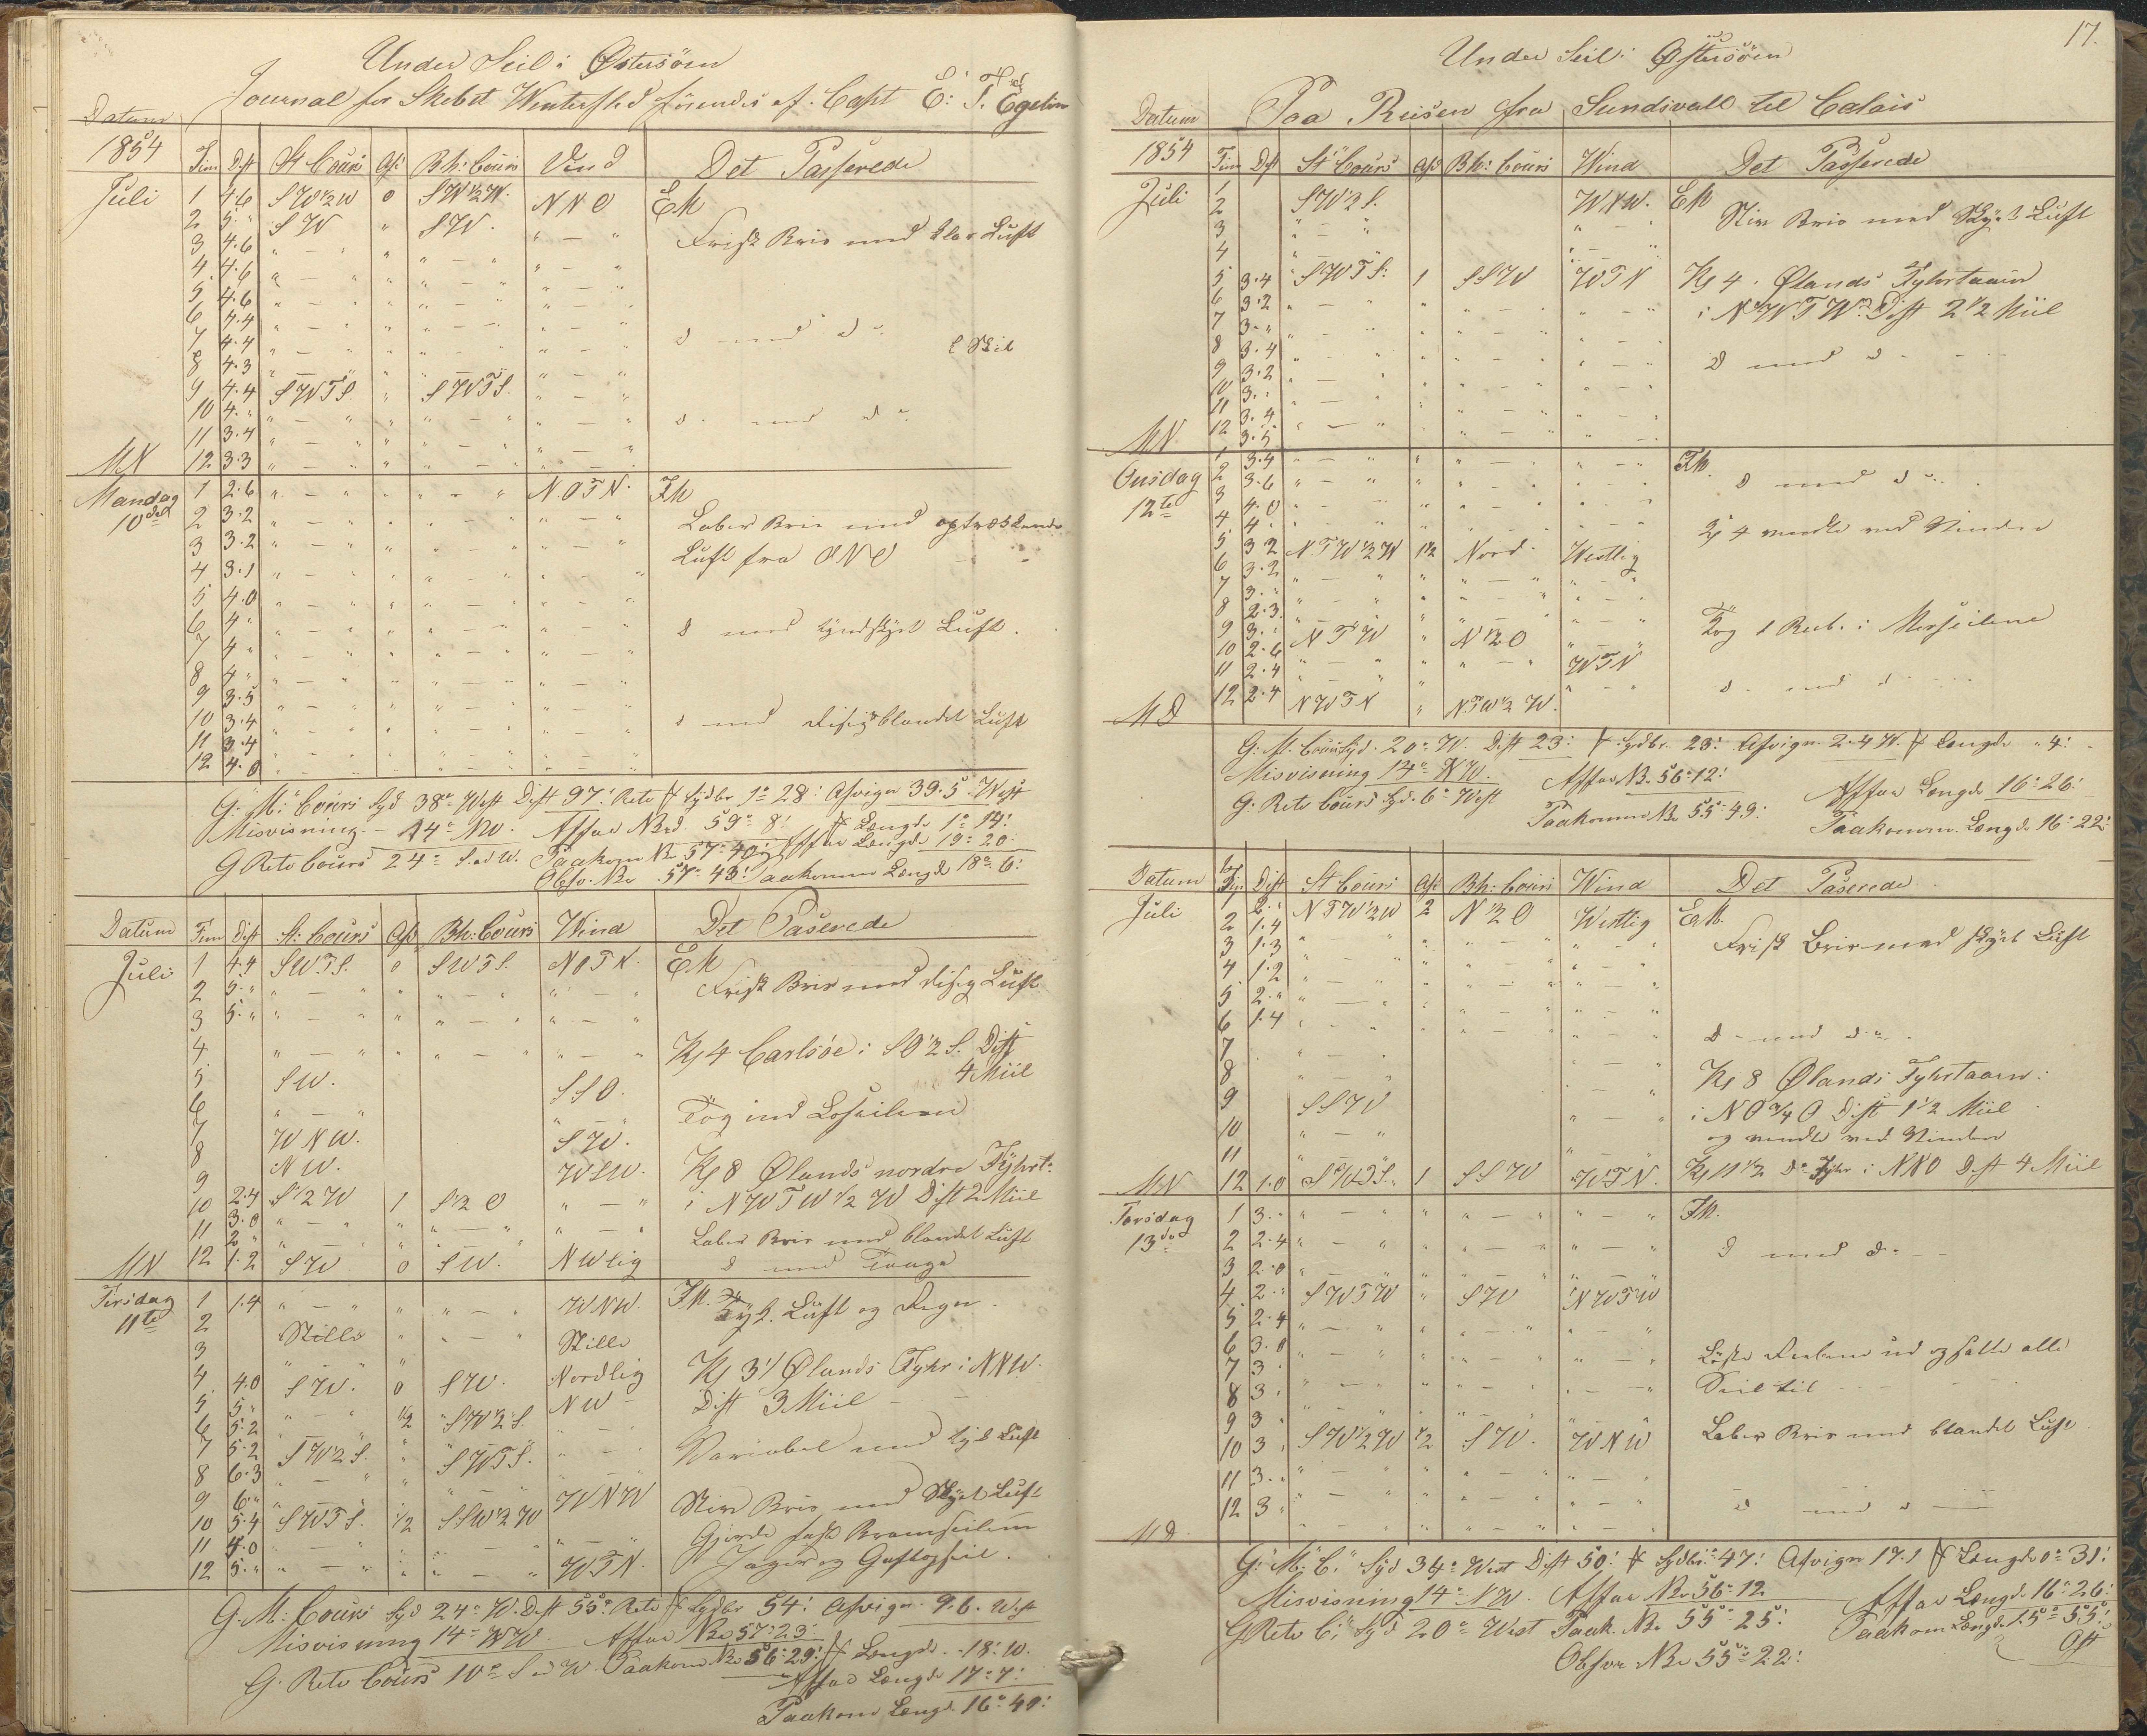 Under Seil i Østersöen
Journal for Skibet Wintersted förendes af Capt E: T. Egelin
Datum
1854 Tim Dist St Cours Afd Bh: Cours Vind Det Passerede
Juli 1 4.6 SW½W 0 SW½W. NNO EM
2 5 " SW " SW. " — "
3 4.6 " — " " " — " " — " Frisk Bris med klar Luft
4 4.6 " — " " " — " " — "
5 4.6 " — " " " — " " — "
6 4.4 " — " " " — " " — "
7 4.4 " — " " " — " " — " d med d
8 4.3 " — " " " — " " — "
9 4.4 SWTS. " SWTS. " — "
10 4. " " — " " " — " " — "
11 3.4 " — " " " — " " — " d med d
MN 12 3.3 " — " " " — " " — "
Mandag 1 2.6 " — " " " — " NOTN. FM
10de 2 3.2 " — " " " — " " — " Laber Bris med optrækkende
3 3.2 " — " " " — " " — " Luft fra ONO
4 3.1 " — " " " — " " — "
5 4.0 " — " " " — " " — "
6 4 " " — " " " — " " — " d med tyndskyet Luft.
7 4 " " — " " " — " " — "
8 4 " " — " " " — " " — "
9 3.5 " — " " " — " " — "
10 3.4 " — " " " — " " — " d med disig blandet Luft
11 3.4 " — " " " — " " — "
12 4.0 " — " " " — " " — "
G: M: Cours Syd 38° West Dist 97: Rets f Sydbr 1° 28: Afvign 39.5. West
Misvisning — 14° NW. Affar NBrd. 59° 8: f Længde 1° 14:
G Rets Cours 24° S. ad W. Paakom NB 57° 40: Affar Længde 19° 20:
Obsv. NBr 57° 43: Paakommen Længde 18° 6:
Datum Tim Dist St: Cours Afd Bh: Cours Wind Det Paserede
Juli 1 4.4 SWTS. 0 SWTS. NOTN. EM
2 5. " " — " " " — " " — " Frisk Bris med disig Luft
3 5. " " — " " " — " " — "
4 " — " " " — " " — " Kl 4 Carlsöe i SO½S. Dist
5 SW. SSO. 4 Miil
6 " — " " — " Tog ind Læseilene
7 WNW. SW.
8 NW. WSW. Kl 8 Ølands nordre Fyhrt.
9 2.4 S½W 1 S½O " — " i NWTW½W Dist 2 Miil
10 3.0 " — " " " — " " — "
11 2 " " — " " " — " Laber Bris med blandet Luft
MN 12 1.2 SW 0 SW. NWlig d med Taage
Tirsdag 1 1.4 " — " " " — " WNW. FM. Tyk. Luft og Regn.
11te 2 Stille " " — " Stille
3 " — " " Nordlig Kl 3½ Ølands Fyhr i NNW.
4 4.0 SW. 0 SW. NW Dist 3 Miil —
5 5 " " — " ½ SW½S.
6 5.2 " — "
7 5.2 SW½S. " SWTS. " — " Variabel med tyk Luft
8 6.3 " — "
9 6. " " — " WNW Stiv Bris med Skyet Luft
10 5.4 SWTS. ½ SSW½W Gjorde fast Bramseilene
11 4.0 " — " " " — " " — " Jager og Gaftopseil.
12 5. " " — " " " — " WTN.
G. M: Cours Syd 24° W. Dist 55° Rets f Sydbr 54: Afvign 9.6. West
Misvisning 14° NW. Affar NBr 57° 23:
G. Rets Cours 10° S ad W Paakom NBr 56° 29: f Længde — 18: 10.
Affar Længde 17° 7:
Paakom Længd. 16° 49:
17.
Under Seil i Østersöen
Paa Reisen fra Sundsvall til Calais
Datum
1854 Tim Dist St Cours Afd Bh: Cours Wind Det Passerede
Juli 1 WNW. EM
2 SW½S. Stiv Bris med Skyet Luft
3 " — " " — "
4 " — " " — "
5 3.4 SWTS: 1 SSW WTN Kl 4. Ølands Fyhrtaarn
6 3.2 " — " " " — " " — " i NWTW Dist 2½ Miil
7 3. " " — " " " — " " — "
8 3.4 " — " " " — " " — " d med d
9 3.2 " — " " " — " " — "
10 3. " " — " " " — " " — "
11 3.4 " — " " " — " " — "
MN. 12 3.5 " — " " " — " " — "
Onsdag 1 3.4 " — " " " — " " — " FM.
12te 2 3.6 " — " " " — " " — " d med d
3 4.0 " — " " " — " " — "
4 4. " " — " " " — " " — " Kl 4 vendte ved Vinden
5 3.2 NTW½W 1½ Nord. Westlig
6 3.2 " — " " " — " " — "
7 3. " " — " " " — " " — "
8 2.3 " — " " " — " " — "
9 3. " NTW " N½O " — " Tog 1 Reeb. i Merseilene
10 2.6 " — " " " — " WTN
11 2.4 " — " "
MD 12 2.4 NWTN " NTW½W. " — " d med d
G. M. Cours Syd. 20° W. Dist 23: f Sydbr. 23: Afvign 2.4 W. f Længde " 4:
Misvisning 14° NW. Affar NBr 56° 12: Affar Længde 16° 26:
G. Rets Cours Syd. 6° West Paakommen NBr 55° 49: Paakomm. Længde 16° 22:
Datum Tim Dist St Cours Afd Bh: Cours Wind Det Paserede
Juli 1 2. " NTW½W 2 N½O Westlig EM.
2 1.4 " — " " " — " " — " Frisk Bris med skyet Luft
3 1.3 " — " " " — " " — "
4 1.2 " — " " " — " " — "
5 2. " " — " " " — " " — "
6 1.4 " — " " " — " " — " d med d
7 " — " " — "
8 " — " " — " Kl 8 Ølands Fyhrtaarn:
9 SSW i NO¾O Dist 1½ Miil
10 " — " " — " og vendte ved Vinden
11 " — "
MN 12 1.0 SWTS. 1 SSW WTN. Kl 11½ D° Fyhr i NNO Dist 4 Miil
Torsdag 1 3. " " — " " " — " " — " FM.
13de 2 2.4 " — " " " — " " — " d med d
3 2.0 " — " " " — " " — "
4 2. " SWTW " SW NWTW
5 2.4 " — " " " — " " — "
6 3.0 " — " " " — " " — " Löste Reebene ud og satte alle
7 3 " — " " " — " " — " Seil til
8 3 " — " " " — " " — "
9 3 " — " " " — " " — "
10 3 SW½W ½ SW. WNW Laber Bris med blandet Luft
11 3. " " — " " " — " " — "
12 3 " " — " " " — " " — " d med d
MD.
G: M: C: Syd 34° West Dist 50: f Sydbr: 47: Afvign 17.1 f Længde 0° 31:
Misvisning 14° NW. Affar NBr 56° 12 Affar Længde 16° 26:
G Rets C: Syd 20° West Paak. NBr 55° 25: Paakom Længde 15° 55:
Obsv NBr 55° 22: Ost